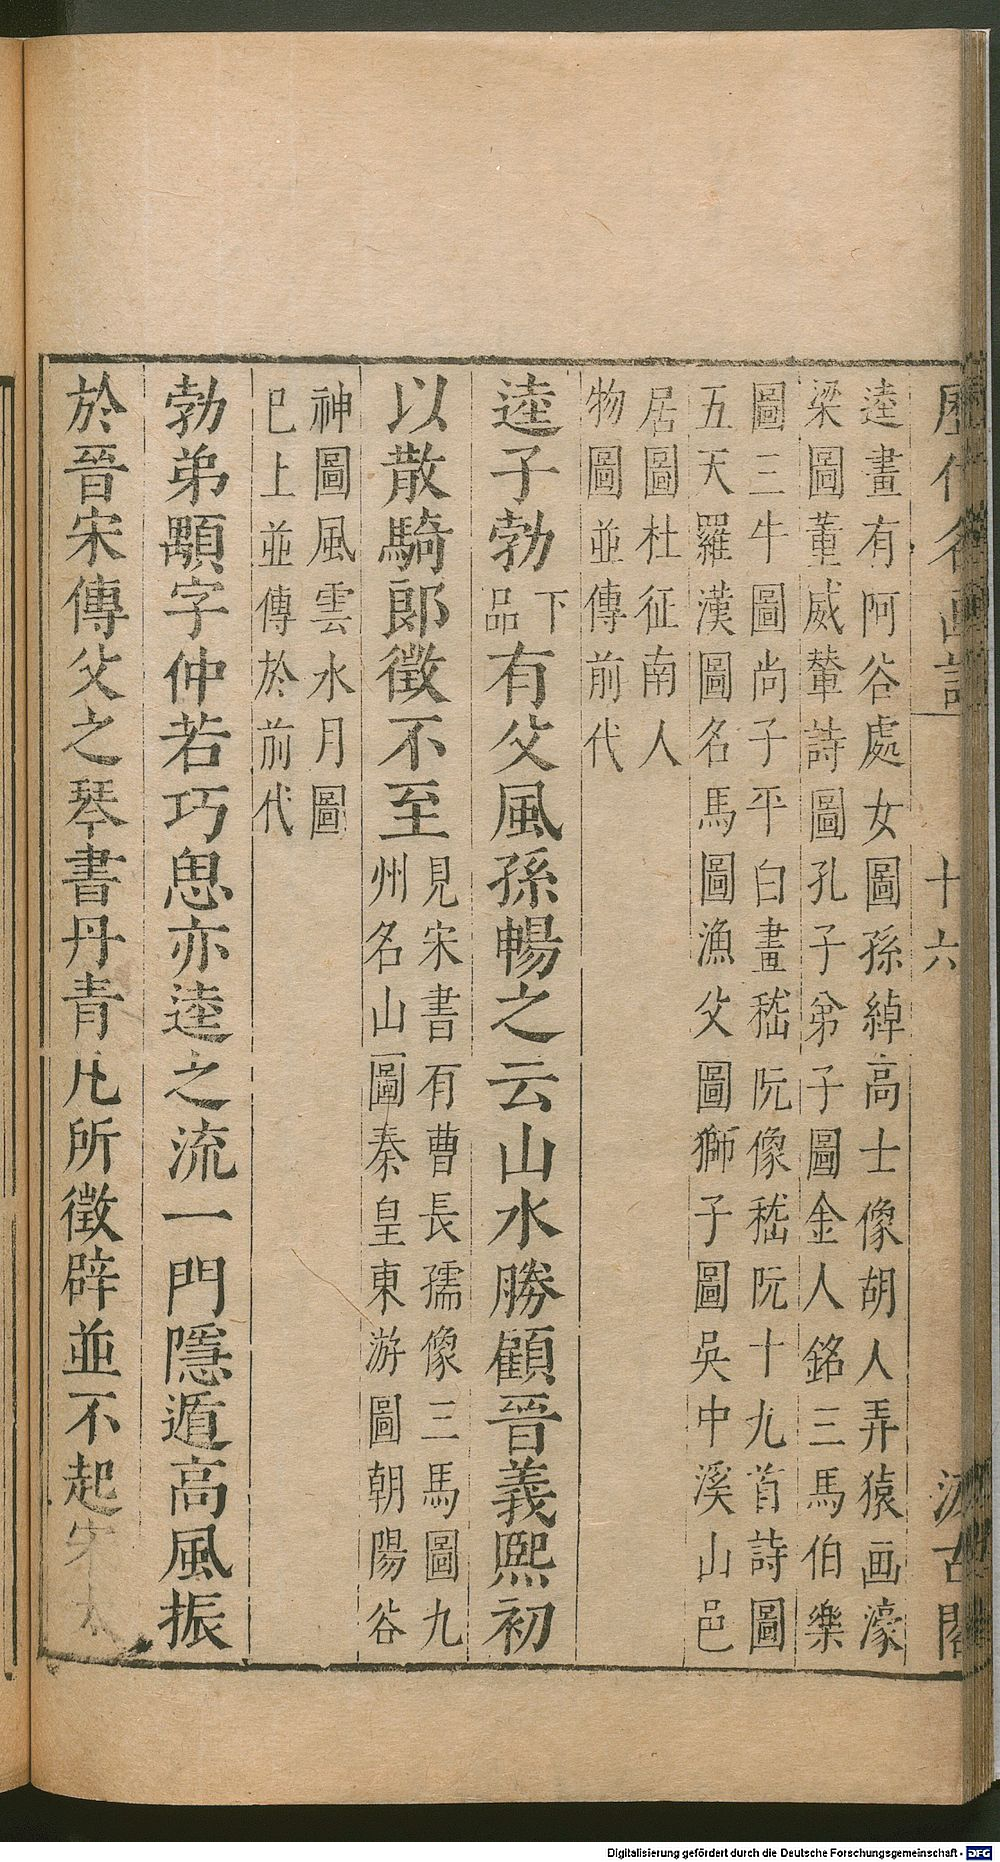 歷代名画記 十六 汲古閣
逵畫有阿谷處女圖孫綽高士像胡人弄猿画濠
梁圖董威輦詩圖孔子弟子圖金人銘三馬伯樂
圖三牛圖尚子平白畫嵇阮像嵇阮十九首詩圖
五天羅漢圖名馬圖漁父圖獅子圖吳中溪山邑
居圖杜征南人
物圖並傳前代
逵子勃下品有父風孫暢之云山水勝顧晉義熙初
以散騎郎徵不至見宋書有曹長孺像三馬圖九
州名山圖秦皇東游圖朝陽谷
神圖風雲水月圖
巳上並傳於前代
勃弟顒字仲若巧思亦逵之流一門隱遁高風振
於晉宋傳父之琴書丹青凡所徵辟並不起宋太
Digitalisierung gefördert durch die Deutsche Forschungsgemeinschaft - DFG